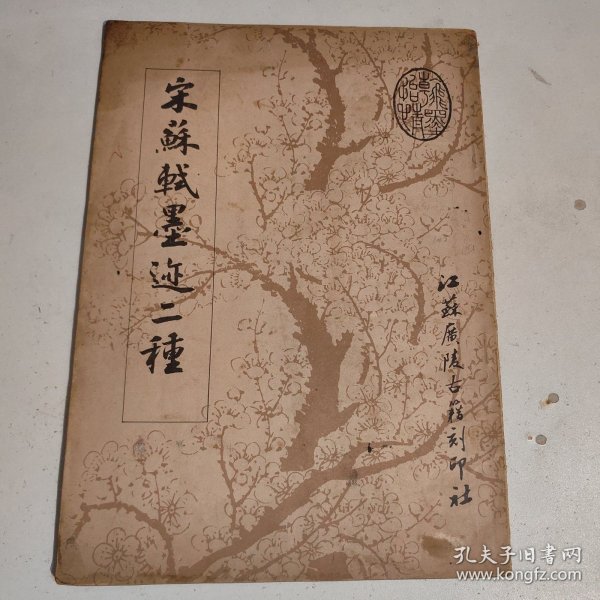 宋蘇軾墨迹二種
江蘇廣陵古籍刻印社
孔夫子旧书网
www.kongfz.com